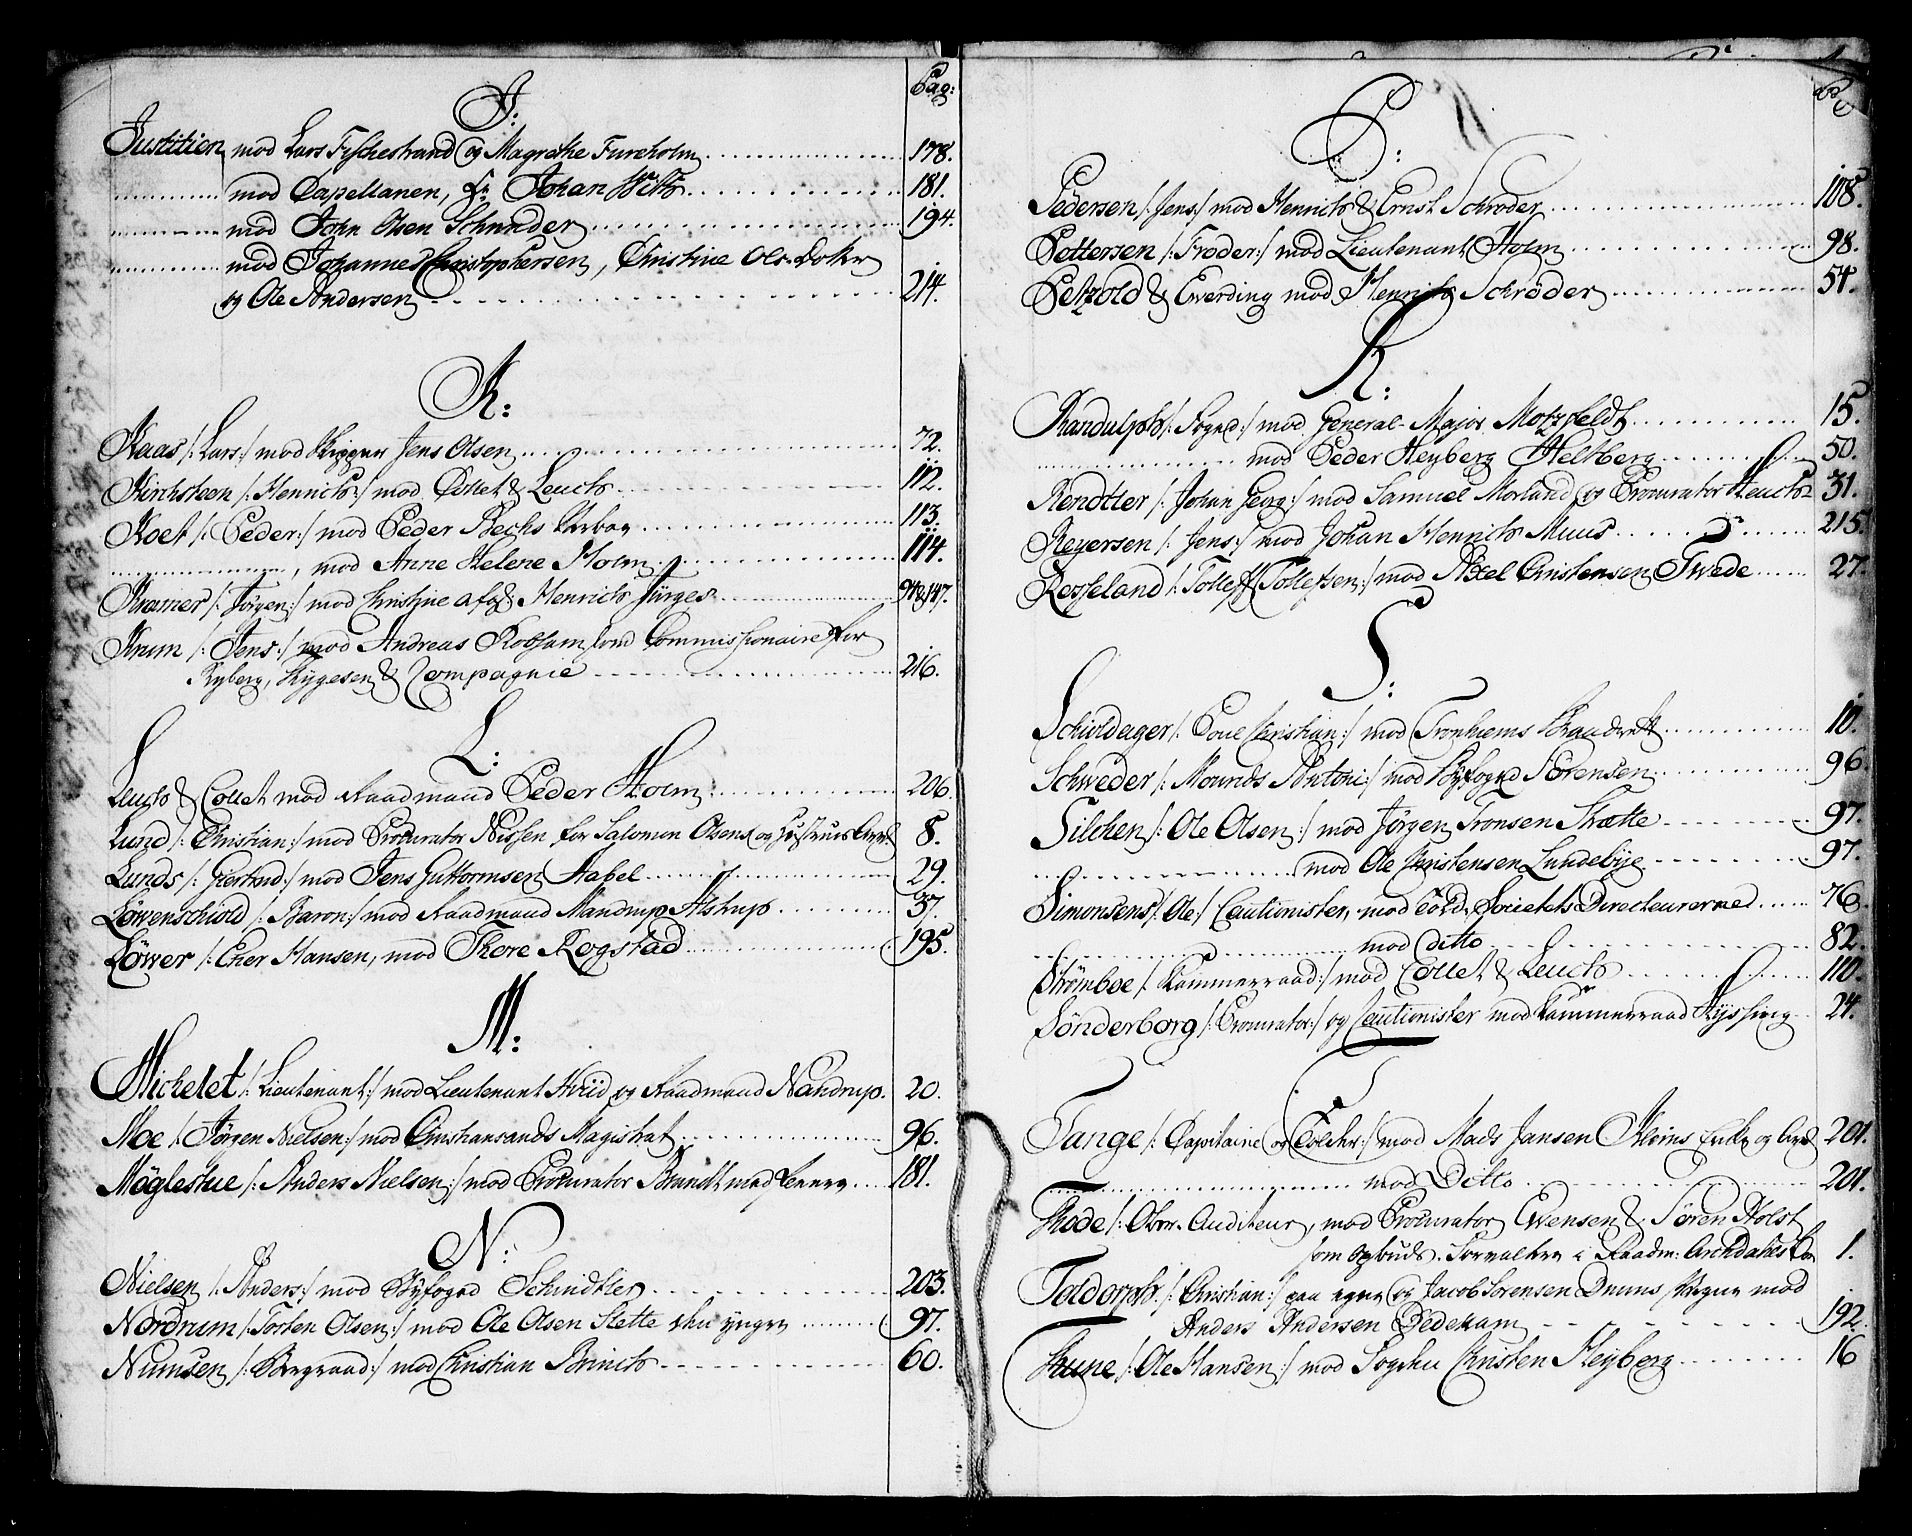 Pag:
J:
Justitien mod Lars Fischestrand og Magrethe Fureholm 178.
mod Capellanen, Hr Johan With 181.
mod John Olsen Schrøder 194.
mod Johannes Christophersen, Christine Ols-Dotter
og Ole Andersen 214.
K:
Kaas /: Lars :/ mod Skipper Jens Olsen 72.
Kirchsteen /: Henrich :/ mod Collet & Leuch 112.
Koet /: Peder :/ mod Peder Bechs 113.
, mod Anne Helene Holm 114.
Kramer /: Jørgen :/ mod Christine afg: Henrich Jürges 94 & 147.
Krum /: Jens :/ mod Andreas Robsam som Commissionaire for
Ryberg, Thygesen & Compagnie 216.
L:
Leuch & Collet mod Raadmand Peder Holm 206.
Lund /: Christian :/ mod Procurator Nissen for Salomon Olsens og Hustrues 8.
Lunds /: Giertrud :/ mod Jens Guttormsen Stabel 29.
Løvenschiold /: Baron :/ mod Raadmand Mandrup Alstrup 37.
Løwer /: Hansen, mod Thore Rogstad 195.
M:
Michelet /: Lieutenant :/ mod Lieutenant Hviid og Raadmand Nandrup. 20.
Moe /: Jørgen Nielsen :/ mod Christiansands Magistrat 96.
Møglestue /: Anders Nielsen :/ mod Procurator Brandt med fleere 181.
N:
Nielsen /: Anders :/ mod Byfoged Schindtler 203.
Nordrum /: Torsten Olsen :/ mod Ole Olsen Slette den yngre 97.
Numsen /: Bergraad :/ mod Christian Brinch 60.
P:
Pedersen /: Jens :/ mod Henrich & Ernst Schrøder 108.
Pettersen /: Frøder :/ mod Lieutenant Holm 98.
Petzold & Ewerding mod Henrich Schrøder 54.
R:
Randulph /: Foged :/ mod General-Major Motzfeldt 15.
mod Peder Heyberg Heltberg 50.
Rendtler /: Johan Georg :/ mod Samuel Morland og Procurator Heuch 31.
Reyersen /: Jens :/ mod Johan Henrich Muus 215.
Rosseland /: Tollef Tollefsen :/ mod Axel Christensen Tvede 27.
S:
Schioldager /: Poul Christian :/ mod Tronhiems Skiaderett 10.
Schweder /: Mourids Antoni :/ mod Byfoged Sørensen 96.
Silchen /: Ole Olsen :/ mod Jørgen Tronsen Slette 97.
mod Ole Christensen Lundebye 97.
Simonsens /: Ole :/ Cautionister, mod Told-Societets Directeurerne 76.
mod Ditto 82.
Strømboe /: Kammerraad :/ mod Collet & Leuch 110.
Sønderborg /: Procurator :/ og Cautionister mod Kammerraad Hyssing 24.
T
Tange /: Capitaine og Tolder :/ mod Mads Jansen Kleins Enke og 201.
mod Ditto 201.
Thode /: Over-Auditeur, mod Procurator Evensen & Søren Holst
som Opbuds-Forvaltere i Raadm: Archdales Boe 1.
Toldorph /: Christian :/ paa egne og Jacob Sørensen Druns Vegne mod
Anders Andersen Dedekam 192.
Thune /: Ole Hansen :/ mod Sogneh Christen Heyberg 16